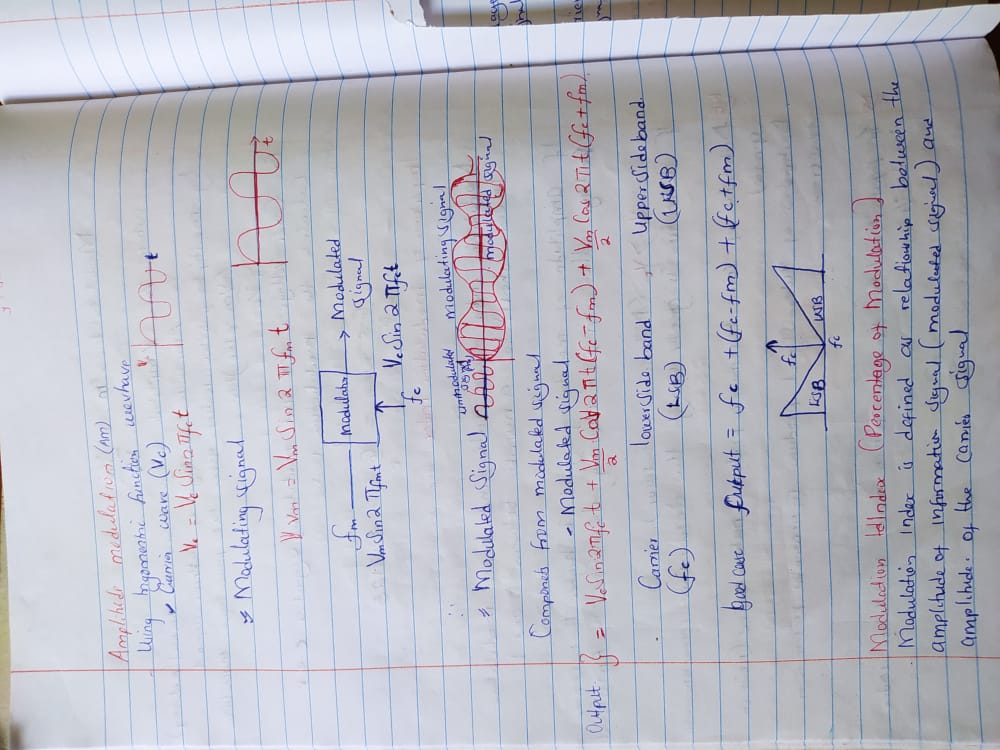 Amplitude modulation (Am)
Using trigometric function wavhave
Carrier wave (Vc)
Vc
t
Vc = Vc Sin 2πfct
Modulating signal
t
V Vm = Vm Sin 2πfmt
fm
modulator
Modulated
signal
Vm Sin 2πfmt
Vc Sin 2πfct
fc
unmodulated
modulating signal
Modulated Signal
modulated signal
Componets from modulated signal
- Modulated signal
Output } = Vc Sin 2πfct + Vm/2 Cos 2πt(fc - fm) + Vm/2 Cos 2πt(fc + fm)
Carrier
(fc)
lower Side band
(LSB)
Upper Side band.
(USB)
good case Output = fc + (fc - fm) + (fc + fm)
fc
LSB
USB
fc
Modulation IdIndex (Percentage of Modulation)
Modulation Index is defined as relationship between the
amplitude of information signal (modulated signal) and
amplitude of the carrier signal